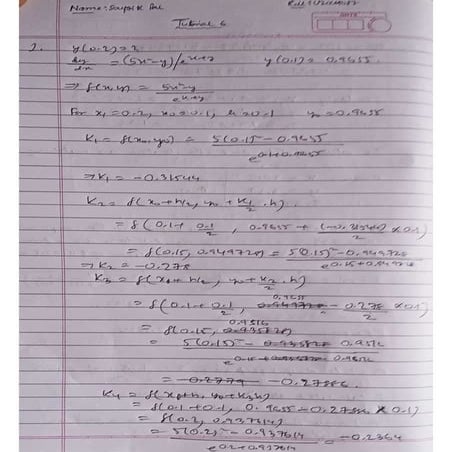 Name:- Saptak Pal
Tutorial 6
DATE
1. y(0.2) = ?
dy/dx = (5x²-y)/e^(x+y) y(0.1) = 0.9655
⇒ f(x,y) = (5x²-y)/e^(x+y)
For x₁=0.2, x₀=0.1, h=0.1 y₀=0.9655
K₁ = f(x₀,y₀) = (5(0.1)²-0.9655)/e^(0.1+0.9655)
⇒ K₁ = -0.31544
K₂ = f(x₀+h/2, y₀+K₁/2 . h)
= f(0.1+0.1/2, 0.9655+(-0.31544)/2 x 0.1)
= f(0.15, 0.949728) = (5(0.15)²-0.949728)/e^(0.15+0.949728)
⇒ K₂ = -0.278
K₃ = f(x₀+h/2, y₀+K₂/2 . h)
= f(0.1+0.1/2, 0.9655 - 0.278/2 x 0.1)
= f(0.15, 0.9516)
= (5(0.15)² - 0.9516)/e^(0.15+0.9516)
= -0.27786.
K₄ = f(x₀+h, y₀+K₃h)
= f(0.1+0.1, 0.9655-0.27886 x 0.1)
= f(0.2, 0.937614)
= (5(0.2)²-0.937614)/e^(0.2+0.937614) = -0.2364